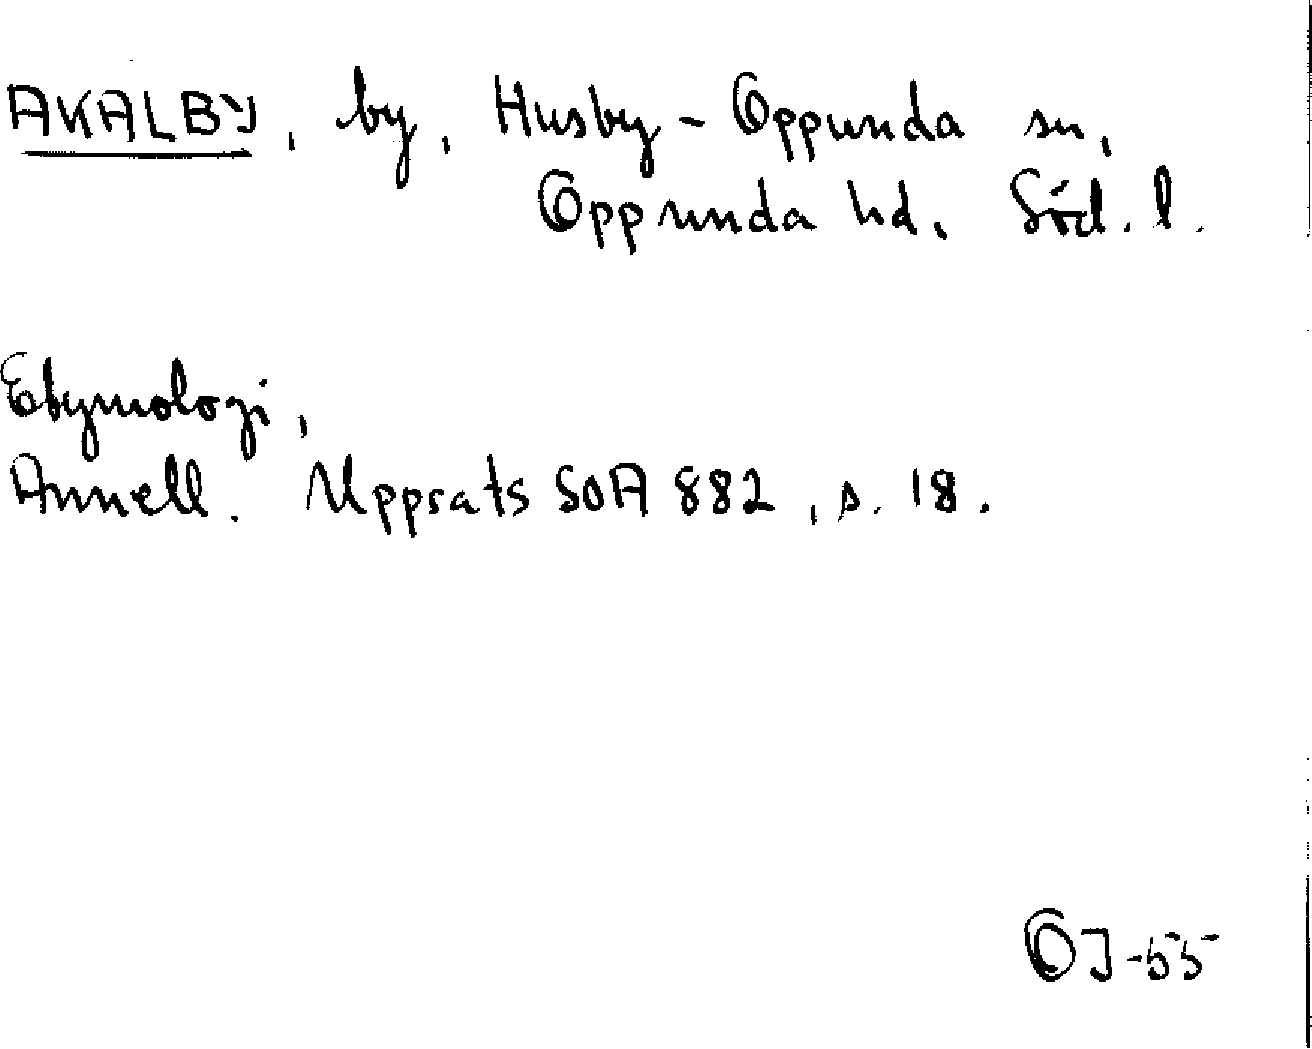 AKALBY, by, Husby-Oppunda sn,
Oppunda hd. Söd. l.
Etymologi,
Annell. Uppsats SOA 882, s. 18.
OJ-55